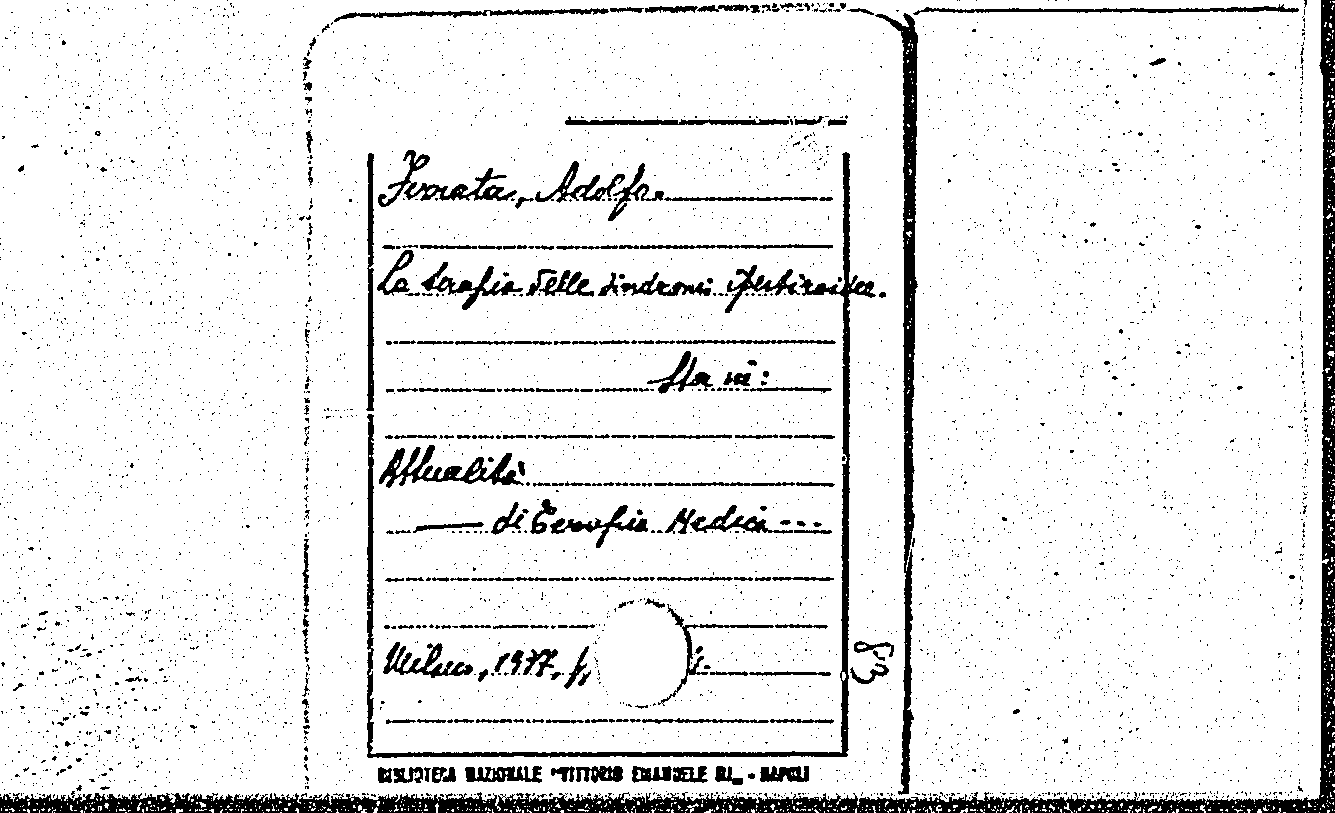 Ferrata, Adolfo.
La terapia delle sindromi ipertiroidee.
Sta in:
Attualità
di Terapia Medica ---
Milano, 1937,
83
BIBLIOTECA NAZIONALE "VITTORIO EMANUELE III" - NAPOLI